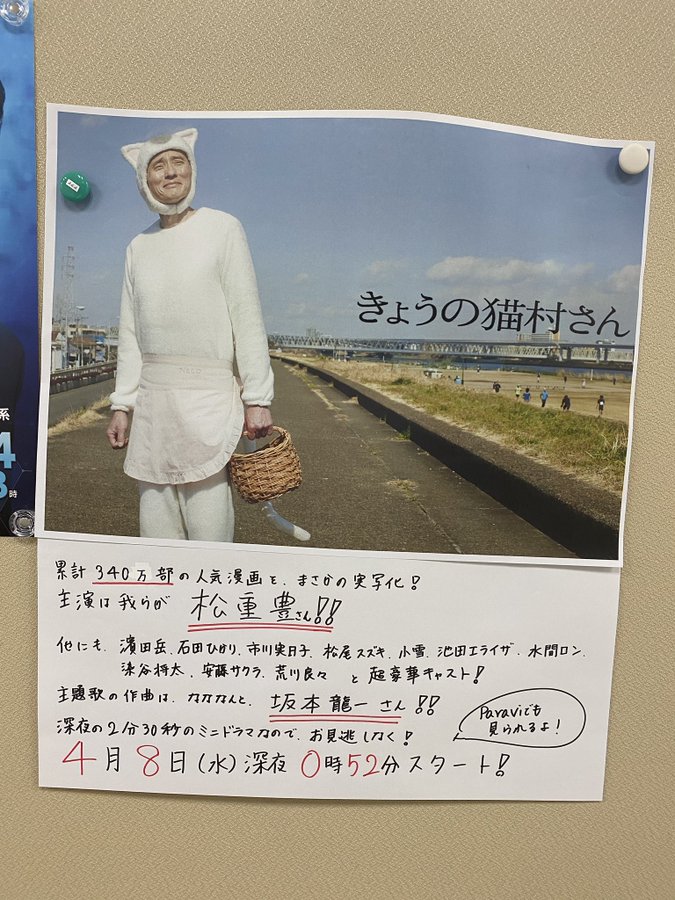 きょうの猫村さん
累計340万部の人気漫画を、まさかの実写化！
主演は我らが 松重豊さん!!
他にも、濱田岳、石田ひかり、市川実日子、松尾スズキ、小雪、池田エライザ、水間ロン、
染谷将太、安藤サクラ、荒川良々 と 超豪華キャスト！
主題歌の作曲は、ななななんと、坂本龍一さん!!
深夜の2分30秒のミニドラマなので、お見逃しなく！
Paraviでも
見られるよ！
4月8日(水)深夜0時52分スタート！
系
4
時